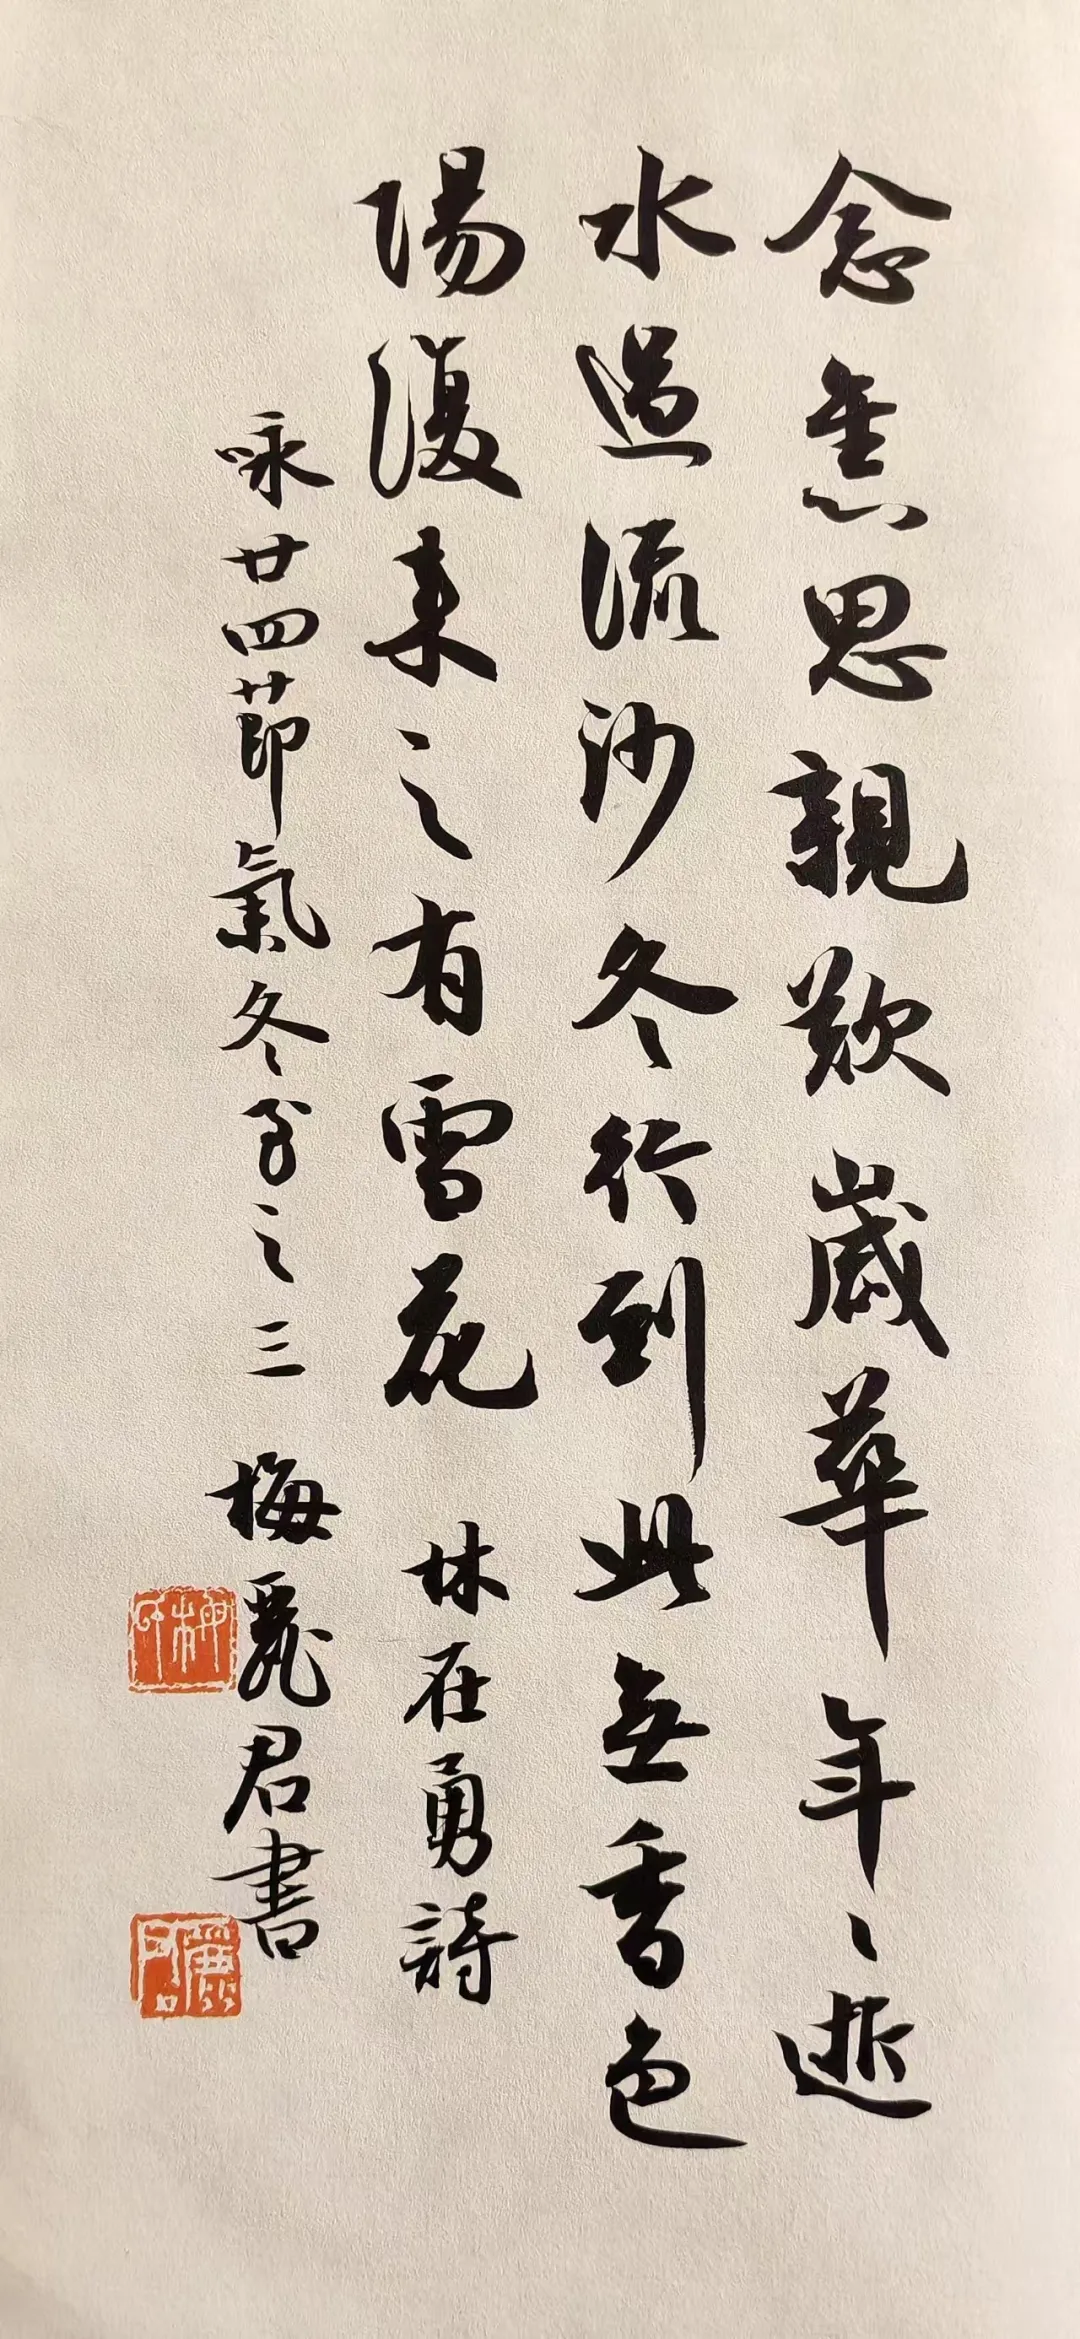 念焦思親歎歲華年〻逝
水過流沙冬行到此無香色
陽復来之有雪花 林在勇詩
咏廿四節氣冬至之三 梅麗君書
梅印
麗君